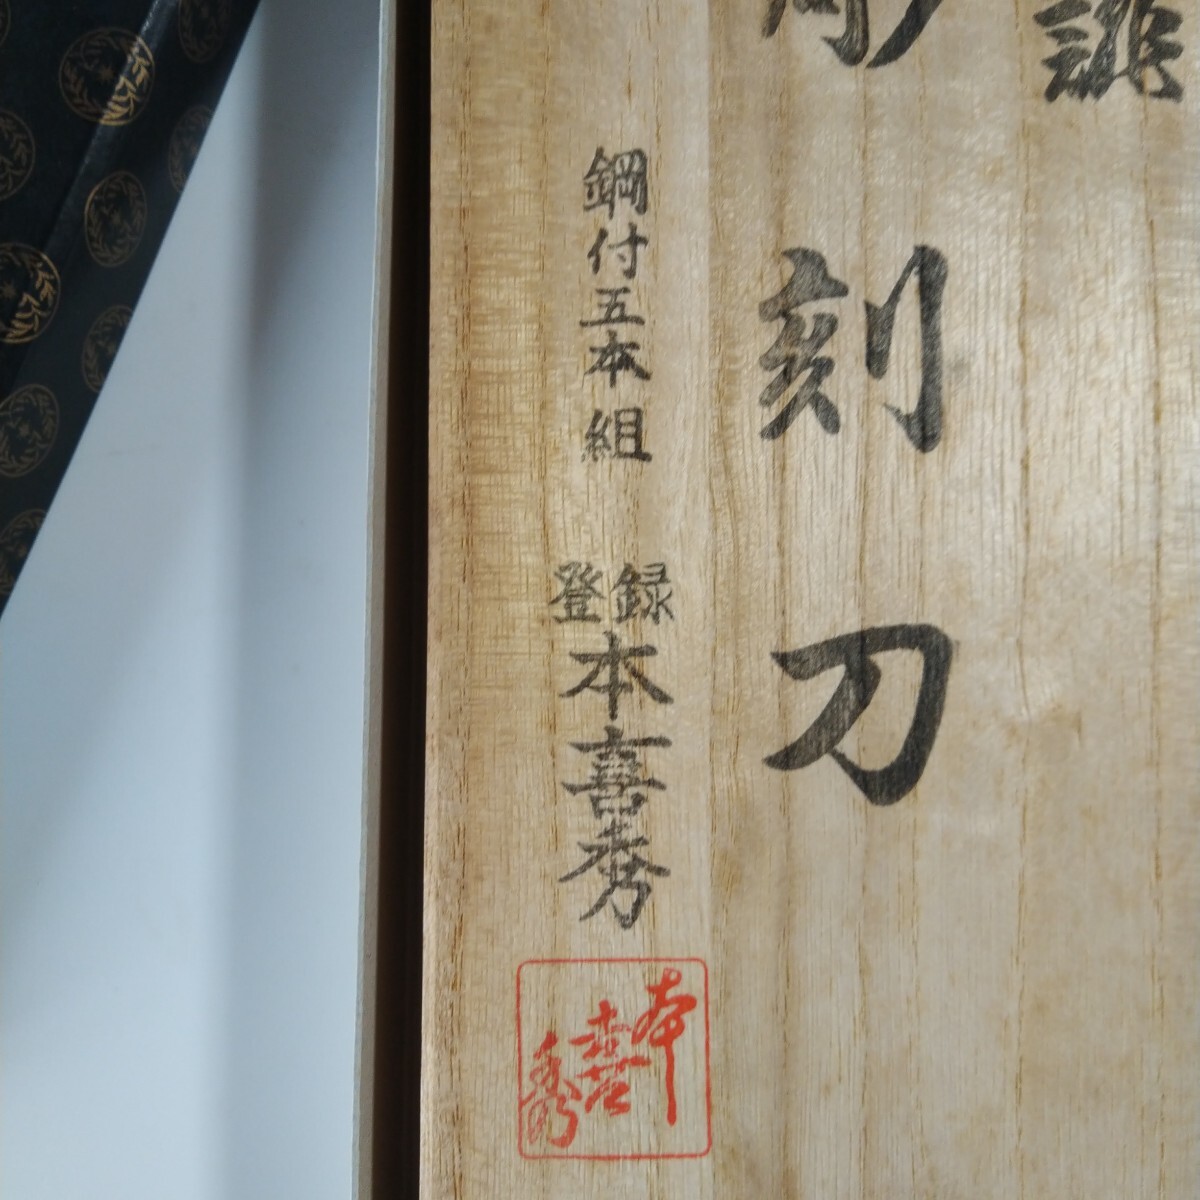 誂
彫刻刀
鋼付五本組
登録
本喜秀
本喜秀